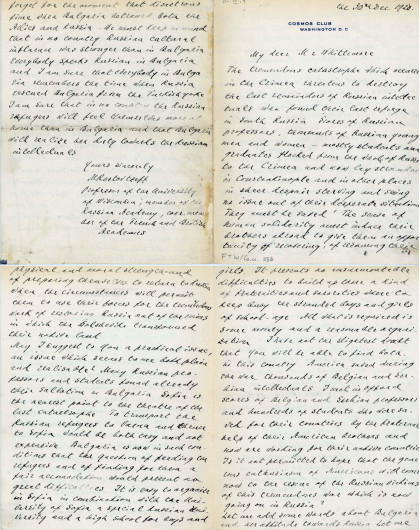 COSMOS CLUB
WASHINGTON D.C.
the 30th Dec. 1920.
My dear Mr Whittemore
The tremendous catastrophe which occured
in the Crimea threatens to destroy
the last remainders of Russian intellec-
tuals who found their last refuge
in South Russia. Scores of Russian
professors, thousands of Russian young
men and women – mostly students and
graduates flocked from the rest of Russia
to the Crimea and now lay stranded
in Constantinople and in other places
in sheer despair starving and seeing
no issue out of their desperate situation.
They must be saved! The sense of
human solidarity must induce their
brothers abroad to give them an oppor-
tunity of recovering, of renewing their
physical and moral strength and
of preparing themselves to return to Russia
when the circumstances will permit
them to use their forces for the tremendous
task of restoring Russia out of the ruins
in which the Bolsheviks transformed
their native land.
May I suggest to you a practical issue,
an issue which seems to me both plain
and realisable? Many Russian pro-
fessors and students found already
their salvation in Bulgaria. Sofia is
the nearest point to the theater of the
last catastrophe. To transport the
Russian refugees to Varna and thence
to Sofia would be both easy and not
expensive. Bulgaria is now in such con-
ditions that the question of feeding the
refugees and of finding for them a
fair accomodation would present no
special difficulties. It is easy to organise
in Sofia in combination with the Uni-
versity of Sofia a special Russian Uni-
versity and a high school for boys and
girls. It presents no unsurmountable
difficulties to build up there a kind
of fraternities and sororities where to
keep the stranded boys and girls
of school age. All that is required is
some money and a reasonable organi-
sation. I have not the slightest doubt
that you will be able to find both
in this country. America saved during
the war thousands of Belgian and Ser-
bian intellectuals. I met in appeal
scores of Belgian and Serbian professors
and hundreds of students who were sa-
ved for their countries by the fraternal
help of their American brothers and
now are working for their native countries.
Is it not permitted to hope that the gene-
rous enthusiasm of Americans will come
now to the rescue of the Russian victims
of this tremendous war which is now
going on in Russia.
Let me add some words about Bulgaria
and her attitude towards Russia. Let us
forget for the moment that
time when Bulgaria both the
Allies and Russia. We must keep in mind
that in no country Russian cultural
influence was stronger than in Bulgaria.
Everybody speaks Russian in Bulgaria
and I am sure that everybody in Bulga-
ria remembers the time when Russia
rescued Bulgaria from the Turkish yoke.
I am sure that in no country the Russian
refugees will feel themselves more at
home than in Bulgaria and that Bulgaria
will realise her duty towards the Russian
intellectuals.
Yours sincerely
M. Rostovtzeff
Professor of the University
of Wisconsin, member of the
Russian Academy, corr. mem-
ber of the French and
Academies